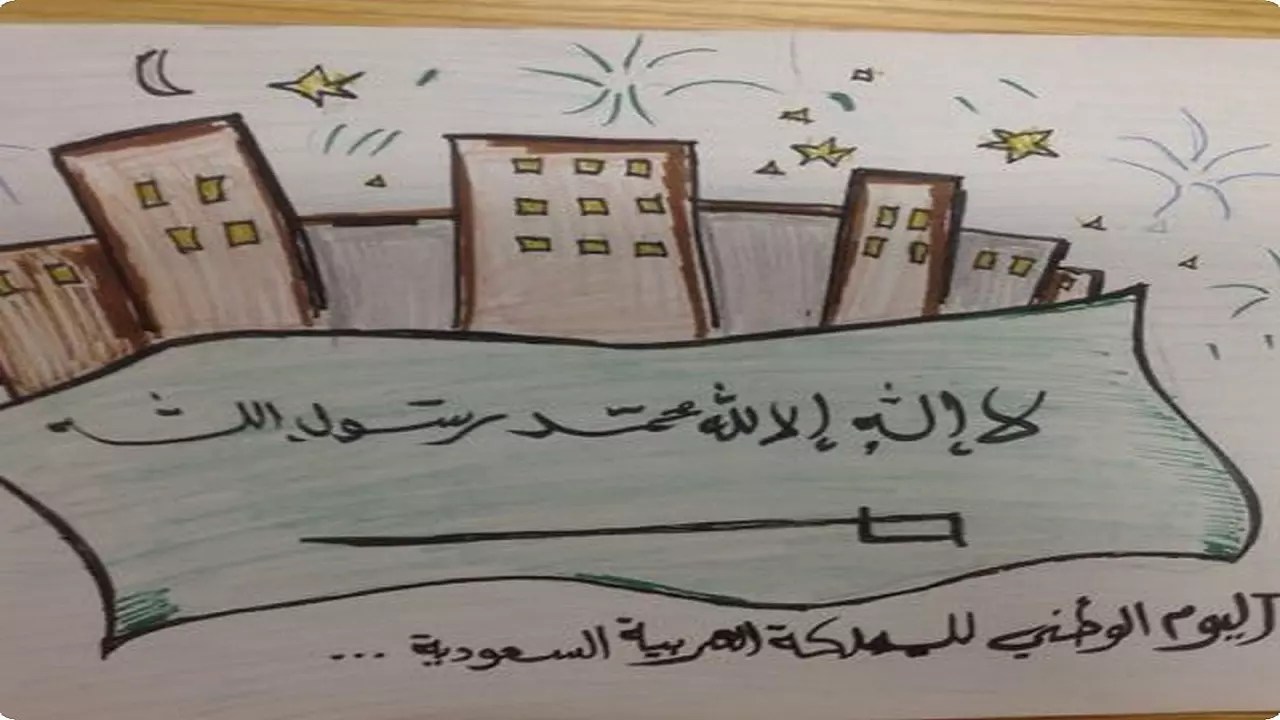 لا إله إلا الله محمد رسول الله
اليوم الوطني للمملكة العربية السعودية ...